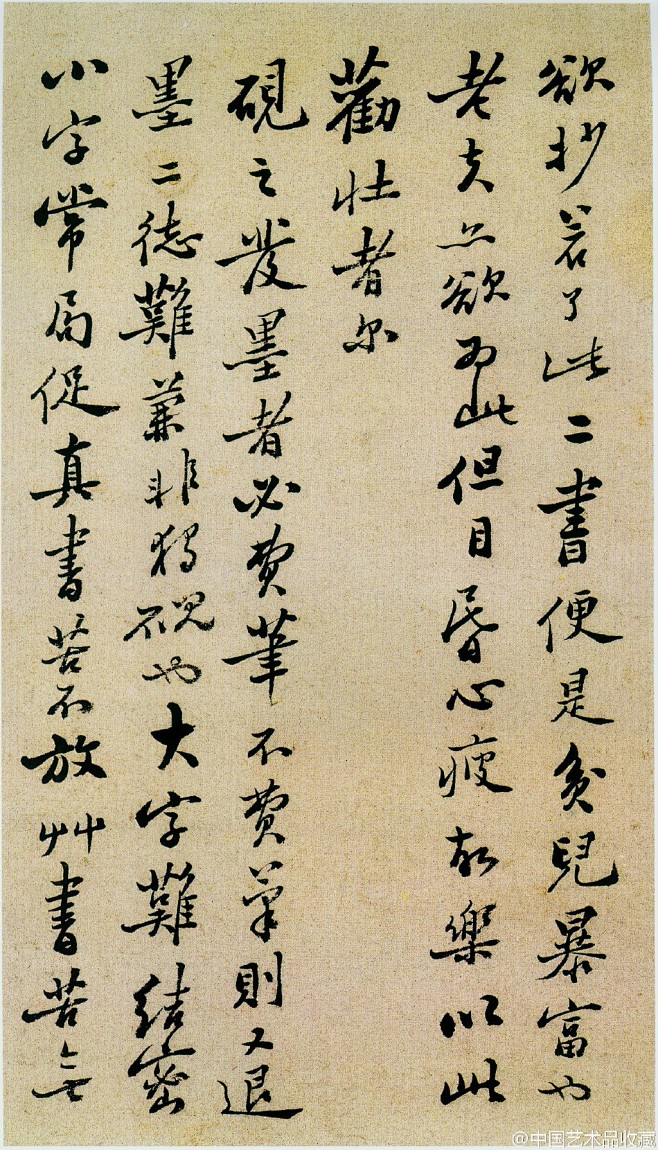 欲抄若了此二書便是貧兒暴富也
老夫亦欲為此但目昏心疲故樂以此
勸壯者尔
硯之發墨者必費筆不費筆則又退
墨二德難兼非獨硯也大字難結密
小字常局促真書苦不放艸書苦無
@中国艺术品收藏